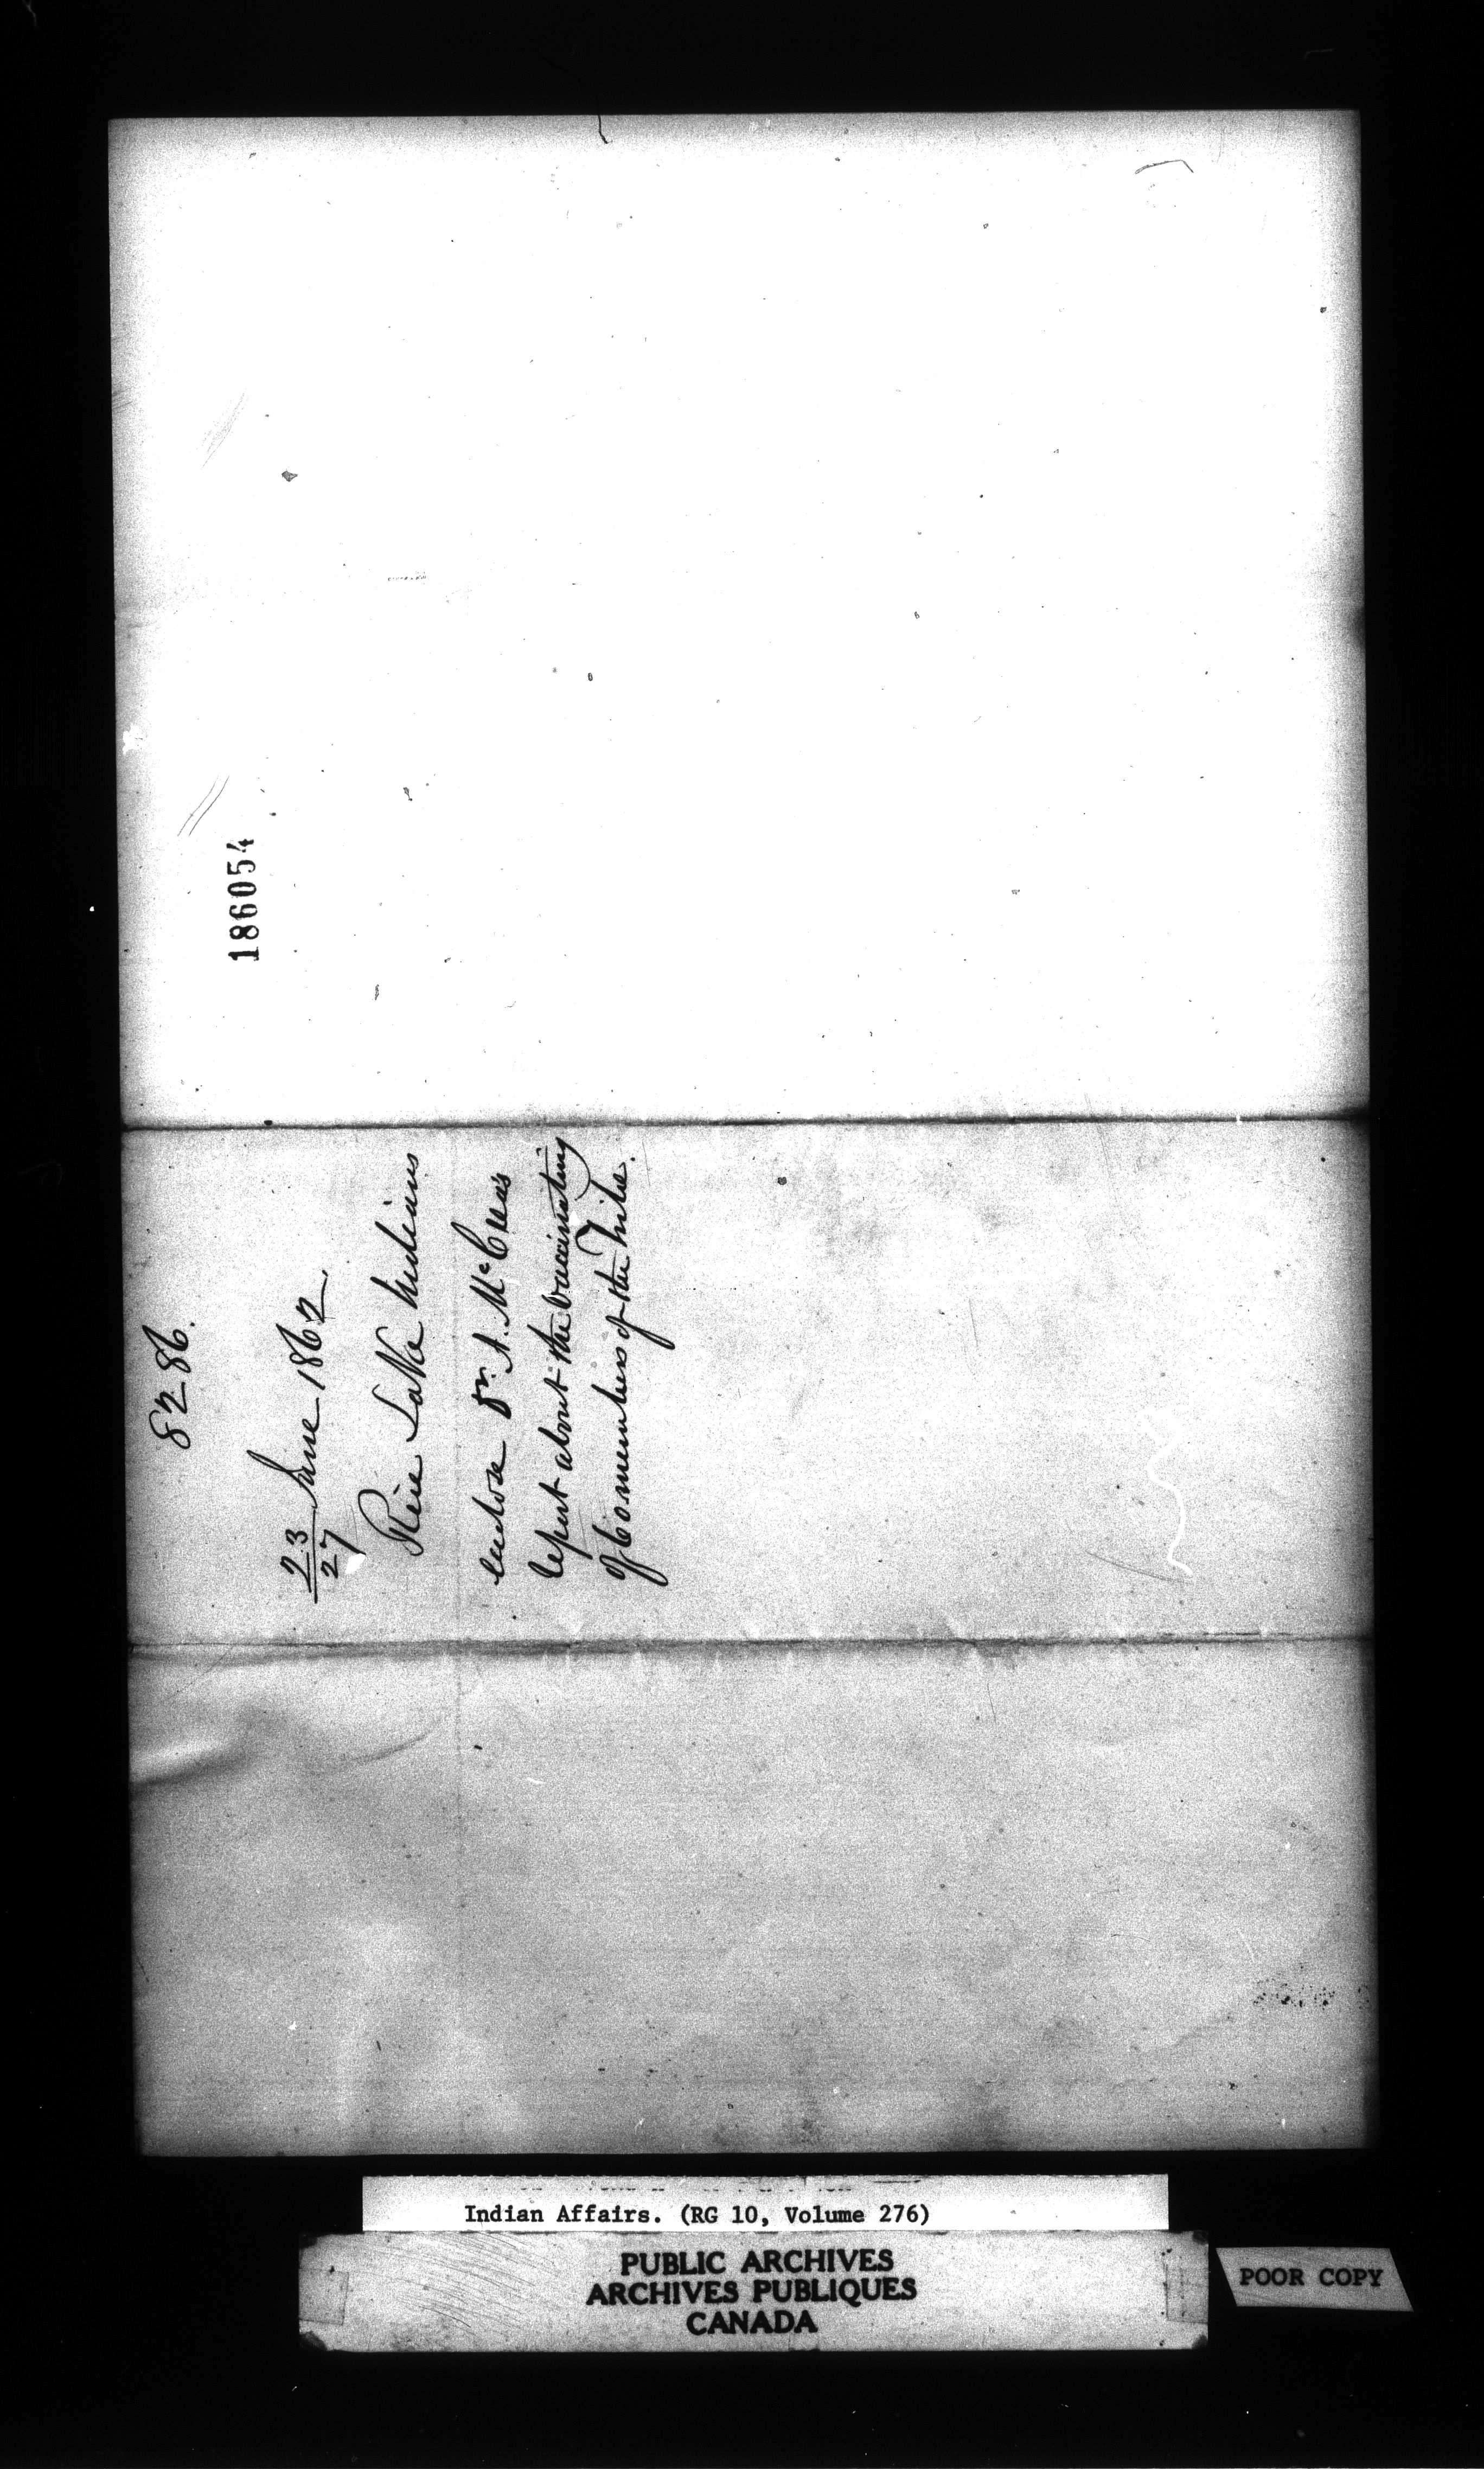 186054
8286.
23/27 June 1862.
Rice Lake Indians
enclose Dr. A. McCrea's
report about the vaccinating
of 60 members of the Tribe.
Indian Affairs. (RG 10, Volume 276)
PUBLIC ARCHIVES
ARCHIVES PUBLIQUES
CANADA
POOR COPY